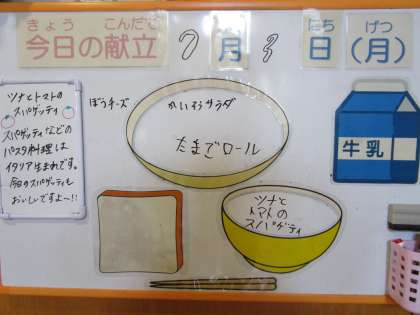 きょう こんだて
今日の献立
7月8日(月)
にち げつ
ツナとトマトの
スパゲッティ
スパゲッティなどの
パスタ料理は
イタリア生まれです。
今日のスパゲッティも
おいしいですよ〜!!
ぼうチーズ
かいそうサラダ
たまごロール
牛乳
ツナと
トマトの
スパゲティ